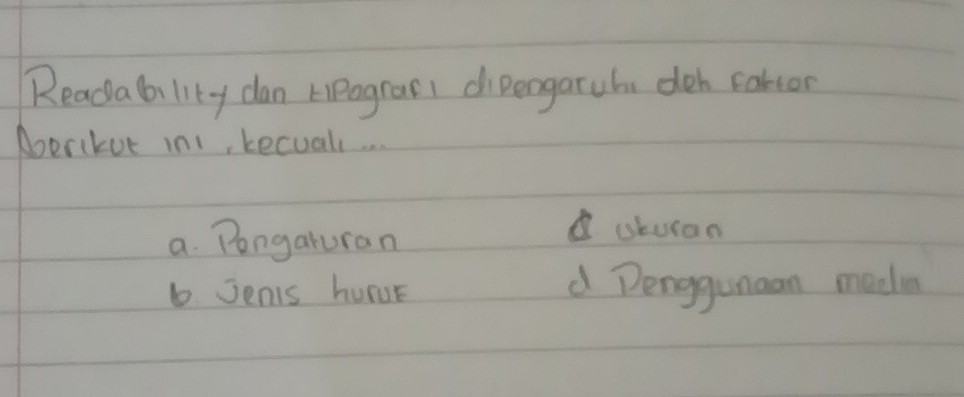 Readability dan tipografi dipengaruhi oleh faktor
berikut ini, kecuali ...
a. Pengaturan
c ukuran
b. Jenis huruf
d Penggunaan media